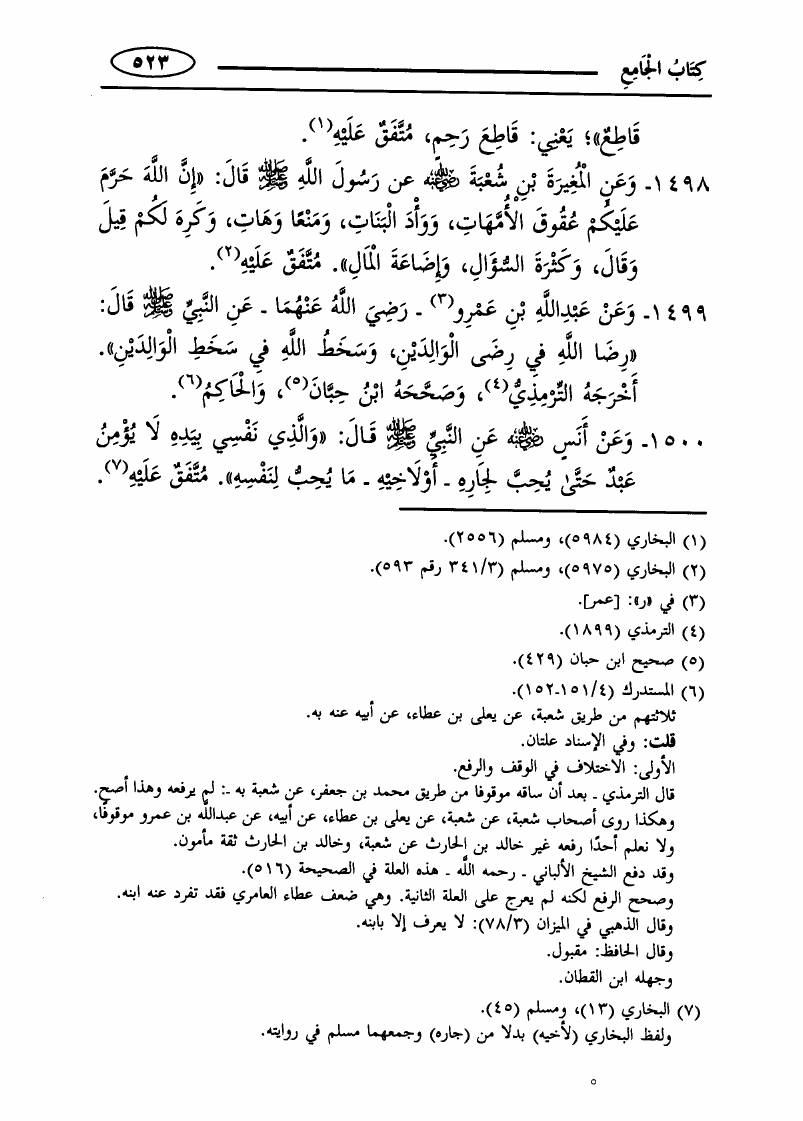 كِتَابُ الْجَامِعِ ٥٢٣
قَاطِعٌ»؛ يَعْنِي: قَاطِعَ رَحِمٍ، مُتَّفَقٌ عَلَيْهِ(١).
١٤٩٨ـ وَعَنِ الْمُغِيرَةَ بْنِ شُعْبَةَ ﷺ عن رَسُولَ اللَّهِ ﷺ قَالَ: «إِنَّ اللَّهَ حَرَّمَ
عَلَيْكُمْ عُقُوقَ الْأُمَّهَاتِ، وَوَأْدَ الْبَنَاتِ، وَمَنْعًا وَهَاتِ، وَكَرِهَ لَكُمْ قِيلَ
وَقَالَ، وَكَثْرَةَ السُّؤَالِ، وَإِضَاعَةَ الْمَالِ». مُتَّفَقٌ عَلَيْهِ(٢).
١٤٩٩ـ وَعَنْ عَبْدِاللَّهِ بْنِ عَمْرِو(٣) ـ رَضِيَ اللَّهُ عَنْهُمَا ـ عَنِ النَّبِيِّ ﷺ قَالَ:
«رِضَا اللَّهِ فِي رِضَى الْوَالِدَيْنِ، وَسَخَطُ اللَّهِ فِي سَخَطِ الْوَالِدَيْنِ».
أَخْرَجَهُ التِّرْمِذِيُّ(٤)، وَصَحَّحَهُ ابْنُ حِبَّانَ(٥)، وَالْحَاكِمُ(٦).
١٥٠٠ـ وَعَنْ أَنَسٍ عَنِ النَّبِيِّ ﷺ قَالَ: «وَالَّذِي نَفْسِي بِيَدِهِ لَا يُؤْمِنُ
عَبْدٌ حَتَّىٰ يُحِبَّ لِجَارِهِ ـ أَوْلَاخِيْهِ ـ مَا يُحِبُّ لِنَفْسِهِ». مُتَّفَقٌ عَلَيْهِ(٧).
(١) البخاري (٥٩٨٤)، ومسلم (٢٥٥٦).
(٢) البخاري (٥٩٧٥)، ومسلم (٣٤١/٣ رقم ٥٩٣).
(٣) في «ر»: [عمر].
(٤) الترمذي (١٨٩٩).
(٥) صحيح ابن حبان (٤٢٩).
(٦) المستدرك (١٥١/٤ـ١٥٢).
ثلاثتهم من طريق شعبة، عن يعلى بن عطاء، عن أبيه عنه به.
قلت: وفي الإسناد علتان.
الأولى: الاختلاف في الوقف والرفع.
قال الترمذي ـ بعد أن ساقه موقوفا من طريق محمد بن جعفر، عن شعبة به ـ: لم يرفعه وهذا أصح.
وهكذا روى أصحاب شعبة، عن شعبة، عن يعلى بن عطاء، عن أبيه، عن عبدالله بن عمرو موقوفًا،
ولا نعلم أحدًا رفعه غير خالد بن الحارث عن شعبة، وخالد بن الحارث ثقة مأمون.
وقد دفع الشيخ الألباني ـ رحمه الله ـ هذه العلة في الصحيحة (٥١٦).
وصحح الرفع لكنه لم يعرج على العلة الثانية. وهي ضعف عطاء العامري فقد تفرد عنه ابنه.
وقال الذهبي في الميزان (٧٨/٣): لا يعرف إلا بابنه.
وقال الحافظ: مقبول.
وجهله ابن القطان.
(٧) البخاري (١٣)، ومسلم (٤٥).
ولفظ البخاري (لأخيه) بدلا من (جاره) وجمعهما مسلم في روايته.